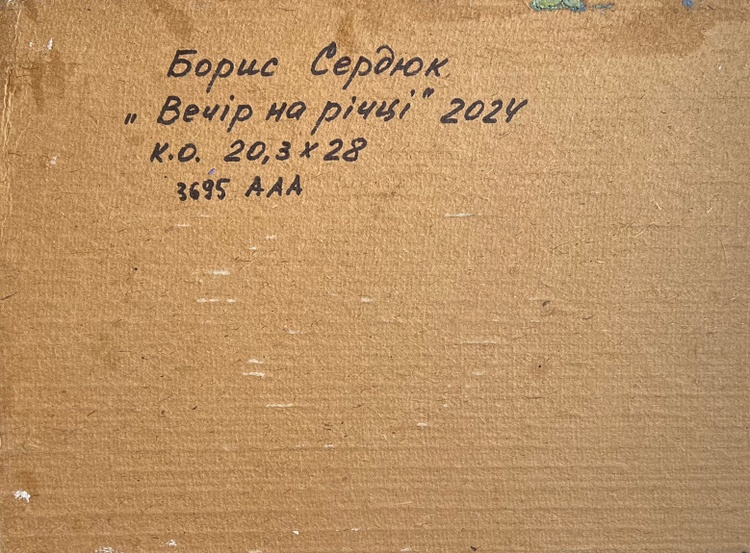 Борис Сердюк
„Вечір на річці" 2024
к.о. 20,3 x 28
3695 AAA